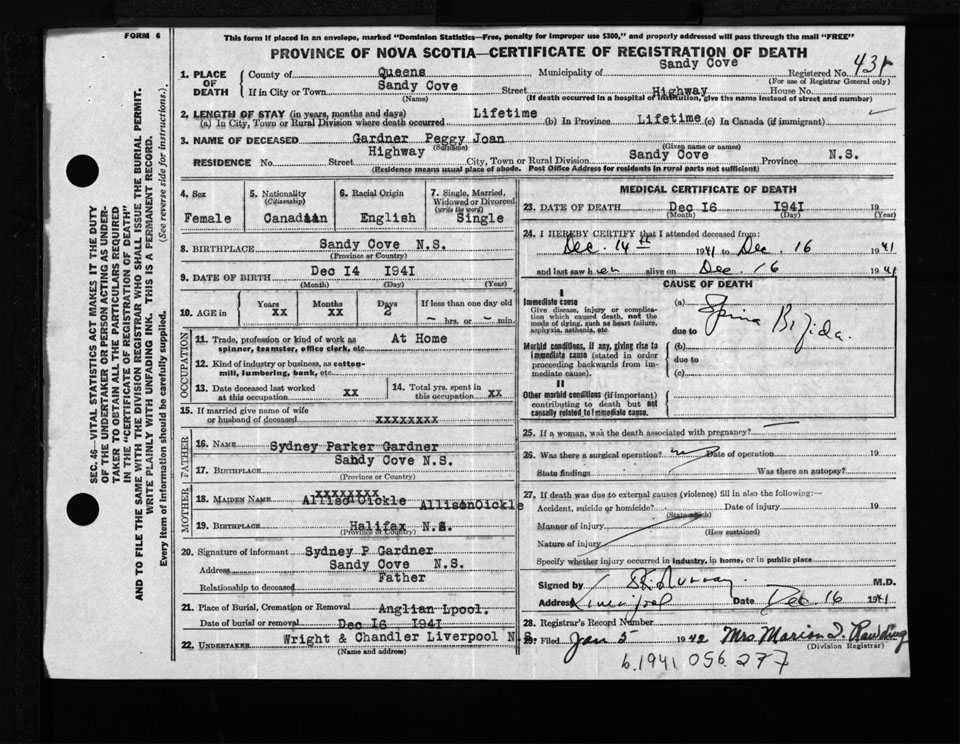 FORM 6
This form if placed in an envelope, marked "Dominion Statistics—Free, penalty for improper use $300," and properly addressed will pass through the mail "FREE"
PROVINCE OF NOVA SCOTIA—CERTIFICATE OF REGISTRATION OF DEATH
SEC. 46—VITAL STATISTICS ACT MAKES IT THE DUTY
OF THE UNDERTAKER OR PERSON ACTING AS UNDER-
TAKER TO OBTAIN ALL THE PARTICULARS REQUIRED
IN THE "CERTIFICATE OF REGISTRATION OF DEATH"
AND TO FILE THE SAME WITH THE DIVISION REGISTRAR WHO SHALL ISSUE THE BURIAL PERMIT.
WRITE PLAINLY WITH UNFADING INK. THIS IS A PERMANENT RECORD.
Every item of information should be carefully supplied. (See reverse side for instructions.)
1. PLACE OF DEATH County of Queens Municipality of Sandy Cove Registered No.
(For use of Registrar General only)
If in City or Town Sandy Cove Street Highway House No.
(Name) (If death occurred in a hospital or institution, give the name instead of street and number)
2. LENGTH OF STAY (in years, months and days)
(a) In City, Town or Rural Division where death occurred Lifetime (b) In Province Lifetime (c) In Canada (if immigrant)
3. NAME OF DECEASED Gardner Peggy Joan
(Surname) (Given name or names)
RESIDENCE No. Street Highway City, Town or Rural Division Sandy Cove Province N.S.
(Residence means usual place of abode. Post Office Address for residents in rural parts not sufficient)
4. Sex Female
5. Nationality (Citizenship) Canadian
6. Racial Origin English
7. Single, Married, Widowed or Divorced (write the word) Single
8. BIRTHPLACE Sandy Cove N.S.
(Province or Country)
9. DATE OF BIRTH Dec 14 1941
(Month) (Day) (Year)
10. AGE in Years xx Months xx Days 2 If less than one day old – hrs. or – min.
OCCUPATION
11. Trade, profession or kind of work as spinner, teamster, office clerk, etc. At Home
12. Kind of industry or business, as cotton-mill, lumbering, bank, etc.
13. Date deceased last worked at this occupation xx
14. Total yrs. spent in this occupation xx
15. If married give name of wife or husband of deceased xxxxxxxx
FATHER
16. NAME Sydney Parker Gardner
17. BIRTHPLACE Sandy Cove N.S.
(Province or Country)
MOTHER
xxxxxxxx
18. MAIDEN NAME AllisoDickle AllisonOickle
19. BIRTHPLACE Halifax N.S.
(Province or Country)
20. Signature of informant Sydney P Gardner
Address Sandy Cove N.S.
Relationship to deceased Father
21. Place of Burial, Cremation or Removal Anglian Lpool.
Date of burial or removal Dec 16 1941
22. UNDERTAKER Wright & Chandler Liverpool N.S.
(Name and address)
MEDICAL CERTIFICATE OF DEATH
23. DATE OF DEATH Dec 16 1941 19
(Month) (Day) (Year)
24. I HEREBY CERTIFY that I attended deceased from:
Dec. 14th 1941 to Dec. 16 1941
and last saw her alive on Dec. 16 1941
CAUSE OF DEATH
I
Immediate cause
Give disease, injury or complication which caused death, not the mode of dying, such as heart failure, asphyxia, asthenia, etc.
(a) Spina Bifida.
due to
Morbid conditions, if any, giving rise to immediate cause (stated in order proceeding backwards from immediate cause).
(b)
due to
(c)
II
Other morbid conditions (if important) contributing to death but not causally related to immediate cause.
25. If a woman, was the death associated with pregnancy? —
26. Was there a surgical operation? no Date of operation 19
State findings Was there an autopsy?
27. If death was due to external causes (violence) fill in also the following:—
Accident, suicide or homicide? Date of injury 19
(State which)
Manner of injury
(How sustained)
Nature of injury
Specify whether injury occurred in industry, in home, or in public place
Signed by M.D.
Address Liverpool Date Dec. 16 1941
28. Registrar's Record Number
29. Filed Jan 5 1942 Mrs. Marion
(Division Registrar)
b.1941 056.277